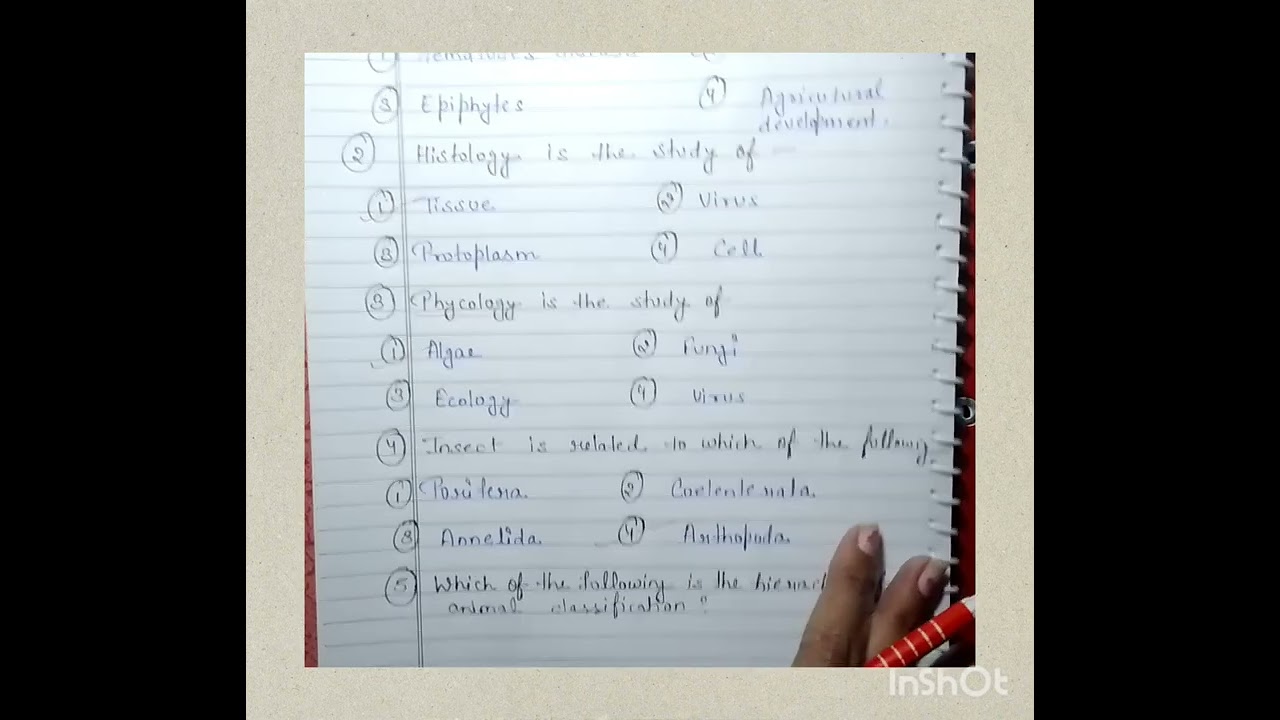 ① 
③ Epiphytes ④ Agricultural development.
② Histology is the study of
① Tissue ② Virus
③ Protoplasm ④ Cell
③ Phycology is the study of
① Algae ② Fungi
③ Ecology ④ Virus
④ Insect is related to which of the following.
① Porifera ② Coelenterata.
③ Annelida ④ Arthopoda
⑤ Which of the following is the
animal classification?
InShOt